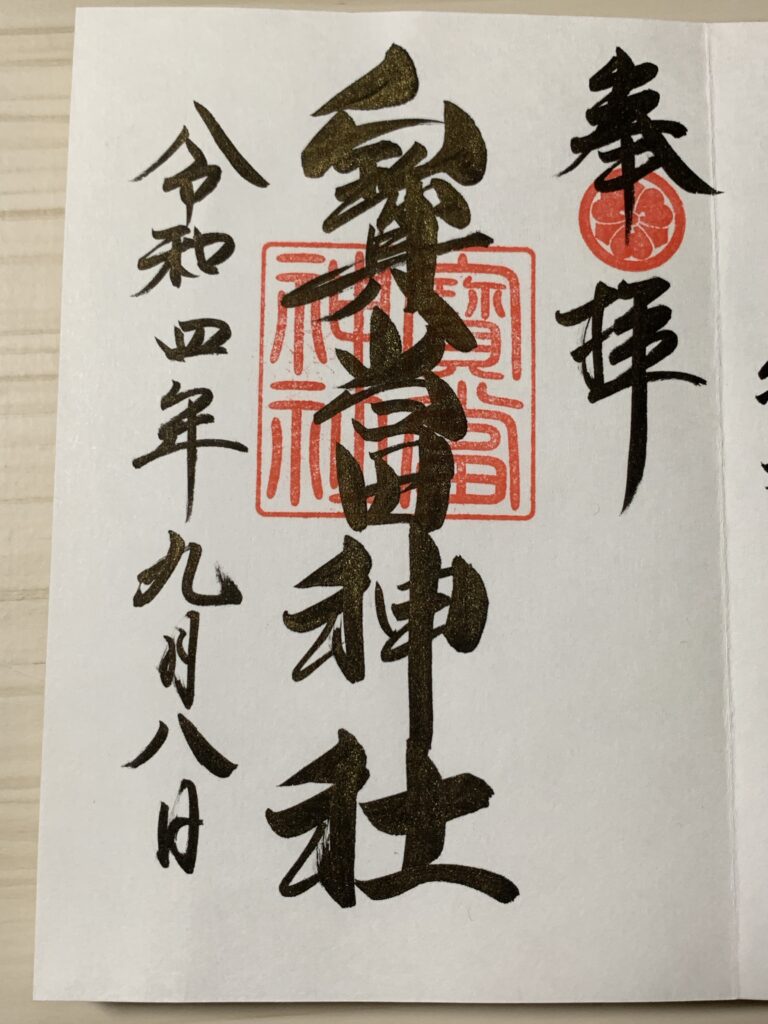 奉拝
寳當神社
寳當
神社
令和四年九月八日